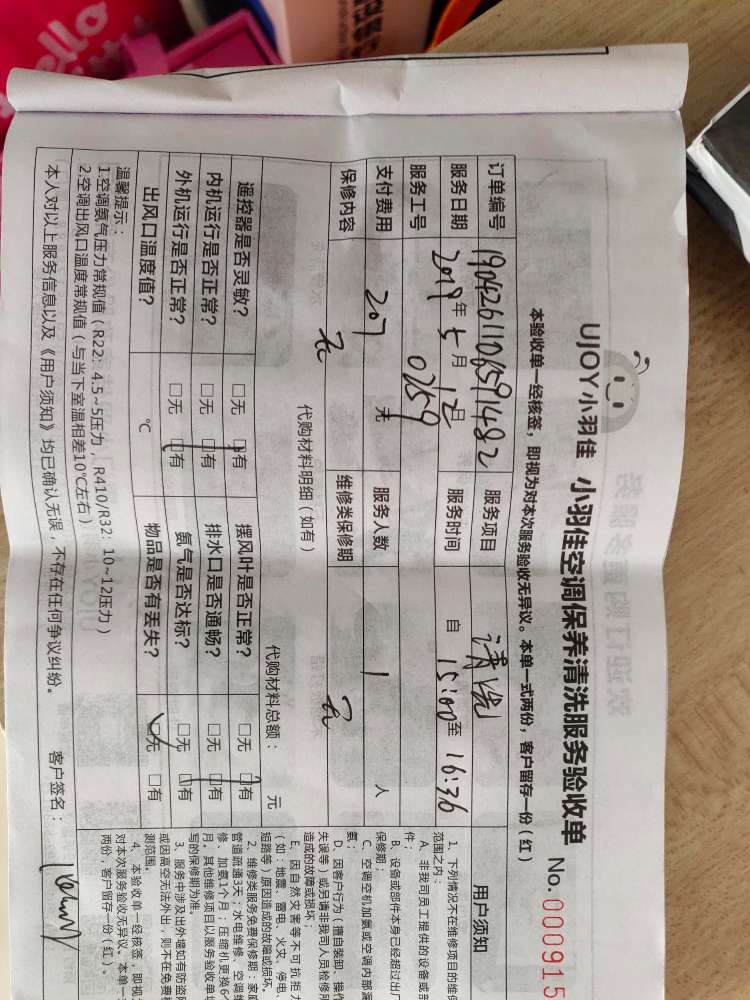 UJOY小羽佳 小羽佳空调保养清洗服务验收单 No. 000915
本验收单一经核签，即视为对本次服务验收无异议。本单一式两份，客户留存一份（红）
订单编号 1904261106591482 服务项目 清洗
服务日期 2019年5月12日 服务时间 自15:00至16:36
服务工号 0259
支付费用 207 元 服务人数 1 人
保修内容 无 维修类保修期 无
代购材料明细（如有） 代购材料总额： 元
遥控器是否灵敏？ □无 □有 摆风叶是否正常？ □无 □有
内机运行是否正常？ □无 □有 排水口是否通畅？ □无 □有
外机运行是否正常？ □无 □有 氨气是否达标？ □无 □有
出风口温度值？ ℃ 物品是否有丢失？ □无 □有
温馨提示：
1.空调氨气压力常规值（R22：4.5~5压力，R410/R32：10~12压力）
2.空调出风口温度常规值（与当下室温相差10℃左右）
本人对以上服务信息以及《用户须知》均已确认无误，不存在任何争议纠纷。 客户签名：
用户须知
1、下列情况不在维修项目的维保
范围之内：
A、非我司员工提供的设备或部
件；
B、设备或部件本身已经超过出厂
保修期；
C、空调空机加氨或空调内部漏
氨；
D、因客户行为（擅自装卸、操作
失误等）或另请非我司人员检修所
造成的故障或损坏；
E、因自然灾害等不可抗拒力
（如：地震、雷电、火灾、停电、
短路等）原因造成的故障或损坏。
2、维修类服务免费保修期：家庭
管道疏通3天，水电维修、空调维
修、加氨1个月；压缩机更换6个
月。其他维修项目以服务验收单填
写的保修期为准。
3、服务中涉及出外墙如有防盗网
或因高空无法外出，则不在免费检
测范围。
4、本验收单一经核签，即视为
对本次服务验收无异议。本单一式
两份，客户留存一份（红）。